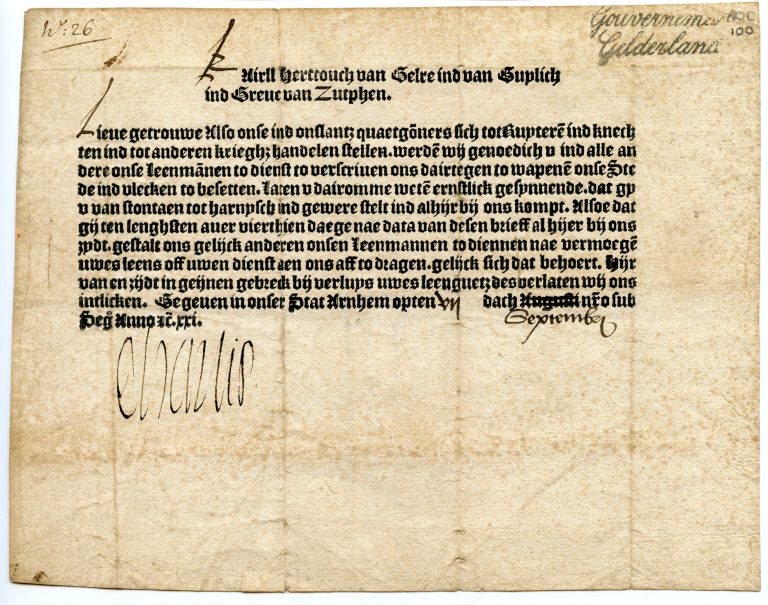 Nº: 26
Gouvernemen
Gelderland
100
Kairll Herttouch van Gelre ind van Guylich
ind Greue van Zutphen.
Lieue getrouwe Also onse ind onslantz quaetgōners sich tot Ruyterē ind knech
ten ind tot anderen krieghz handelen stellen. werdē wij genoedich v ind alle an
dere onse Leenmānen to dienst to verscriuen ons dairtegen to wapenē onse Ste
de ind vlecken to besetten. Laten v dairomme wetē ernstlick gesynnende. dat gy
v van stontaen tot harnysch ind gewere stelt ind alhijr bij ons kompt. Alsoe dat
gij ten lenghsten auer vierthien daege nae data van desen brieff al hijer bij ons
zydt. gestalt ons gelijck anderen onsen Leenmannen to diennen nae vermoegē
uwes leens off uwen dienst aen ons aff to dragen. gelijck sich dat behoert. Hijr
van en zijdt in geijnen gebreck bij verluys uwes leenguetz des verlaten wij ons
intlicken. Gegeuen in onser Stat Arnhem opten vii dach Augusti nr̄o sub
September
Seg̃ Anno rc̄. xxi.
Charlis